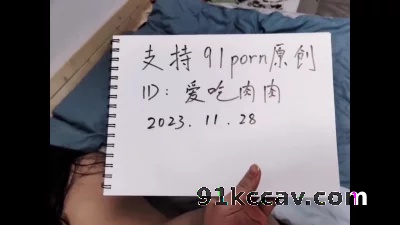 支持91porn原創
ID: 爱吃肉肉
2023.11.28
91kccav.com